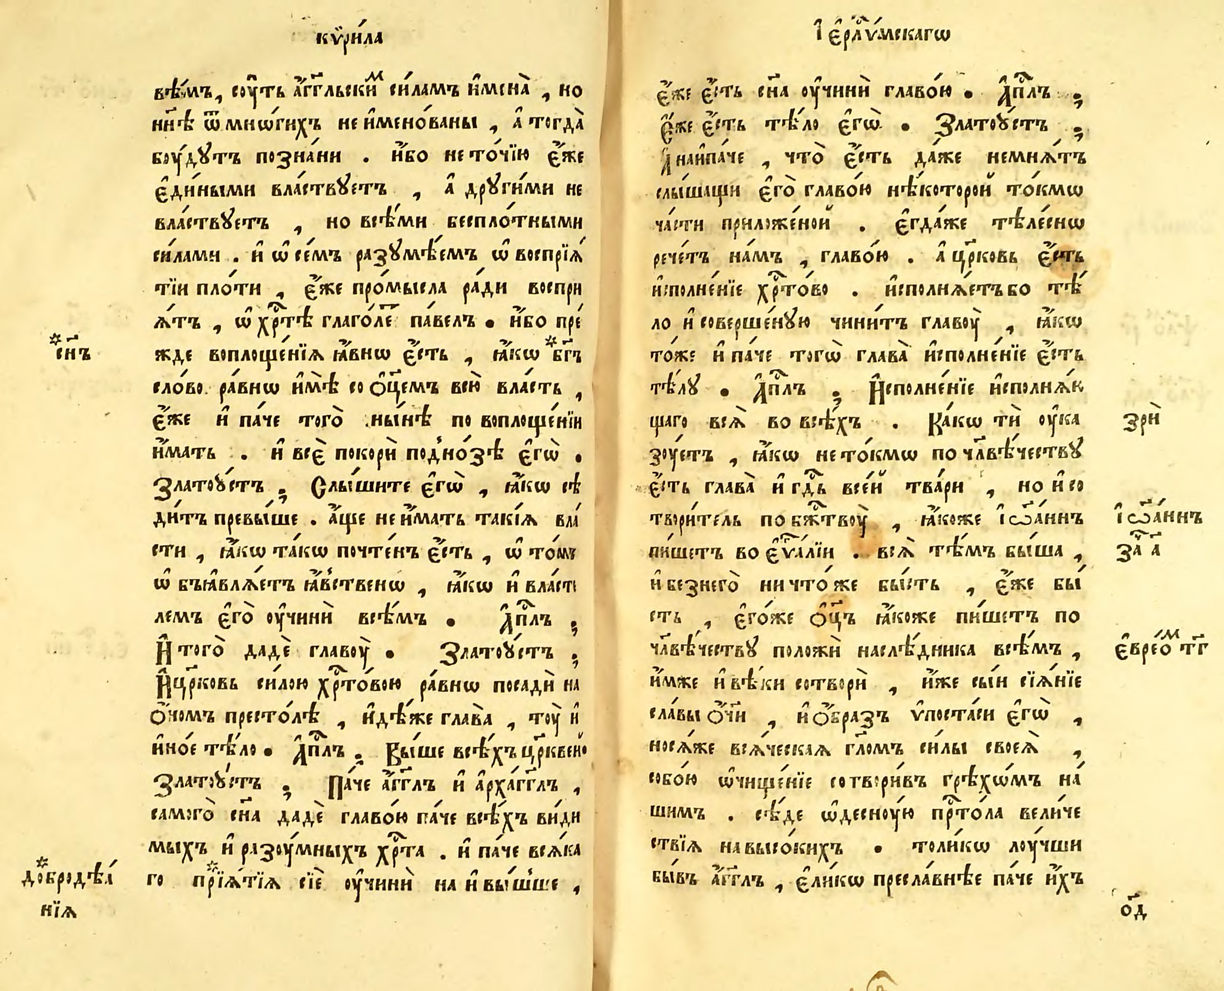 кѷри́ла
вѣ́мъ, сꙋ́ть а҆́гг҃льски̾м си́ламъ и҆мена̀ , но
нн҃ѣ ѿ мно́гихъ не и҆менова́ны , а҆ тогда̀
бѹ́дꙋтъ позна́ни . и҆́бо не то́чїю є҆́же
є҆ди́ными вла́ствꙋетъ , а҆ дрꙋги́ми не
вла́ствꙋетъ , но всѣ́ми беспло́тными
си́лами . и҆ ѡ҆ се́мъ разꙋмѣ́емъ ѡ҆ воспрїѧ́
тїи пло́ти , є҆́же про́мысла ра́ди воспри
ѧ́тъ , ѡ҆ хрⷭ҇тѣ̀ глаго́ле па́велъ . и҆́бо пре́
*сн҃ъ
жде воплоще́нїѧ ꙗ҆́внѡ є҆́сть , ꙗ҆́кѡ *бг҃ъ
сло́во ра́внѡ и҆мѣ̀ со ѻ҆ц҃емъ всю̀ вла́сть ,
є҆́же и҆ па́че того̀ ны́нѣ по воплоще́нїи
и҆́мать . и҆ всѐ покорѝ под̾но́зѣ є҆гѡ̀ .
Златоꙋ́стъ ; Слы́шите є҆гѡ̀ , ꙗ҆́кѡ сѣ
ди́тъ превы́ше . а҆́ще не и҆́мать такі́ѧ вла́
сти , ꙗ҆́кѡ та́кѡ почте́нъ є҆́сть , ѡ҆ то́мъ
ѡ҆ бъѧвлѧ́етъ ꙗ҆́вственѡ , ꙗ҆́кѡ и҆ власти
лемъ є҆го̀ ѹ҆чинѝ всѣ́мъ . А҆пⷭ҇лъ ;
И҆ того̀ дадѐ главѹ̀ . Златоꙋ́стъ ;
И҆ цр҃ковь си́лою хрⷭ҇то́вою ра́внѡ посадѝ на
ѻ҆но́мъ престо́лѣ , и҆дѣ́же глава̀ , тѹ̀ и҆
и҆но́е тѣ́ло . А҆пⷭ҇лъ ; Вы́ше всѣ́хъ цр҃квей
Златоꙋ́стъ ; Па́че а҆́гг҃лъ и҆ а҆рха́гг҃лъ ,
самого̀ сн҃а дадѐ главо́ю па́че всѣ́хъ види́
мыхъ и҆ разѹ́мныхъ хрⷭ҇та̀ . и҆ па́че всѧ́ка
*добродѣѧ́
нїѧ
го *прїѧ́тїѧ сїѐ ѹ҆чинѝ на и҆ вы́шше ,
І҆ єр҃лⷭ҇и́мскагѡ
є҆́же є҆́сть сн҃а ѹ҆чинѝ главо́ю . А҆пⷭ҇лъ ;
Є҆́же є҆́сть тѣ́ло є҆гѡ̀ . Златоꙋ́стъ ;
А҆ наи҆па́че , что̀ є҆́сть да́же немнѧ́тъ
слы́шащи є҆го̀ главо́ю нѣ́которой то́кмѡ
ча́сти приложе́ной . є҆гда́же тѣле́снѡ
рече́тъ на́мъ , главо́ю . а҆ цр҃ковь є҆́сть
и҆сполне́нїе хрⷭ҇то́во . и҆сполнѧ́етъ бо тѣ́
ло и҆ соверше́нꙋю чини́тъ главѹ̀ , ꙗ҆́кѡ
то́же и҆ па́че тогѡ̀ глава̀ и҆сполне́нїе є҆́сть
тѣ́лꙋ . А҆пⷭ҇лъ ; И҆сполне́нїе и҆сполнѧ́ю
щаго всѧ̀ во всѣ́хъ . Ка́кѡ ти̾ ѹ҆ка
зрѝ
зѹ́етъ , ꙗ҆́кѡ не то́кмѡ по чл҃вѣ́чествꙋ
є҆́сть глава̀ и҆ гдⷭ҇ь все́й тва́ри , но и҆ со
твори́тель по бжⷭ҇твѹ̀ , ꙗ҆́коже І҆ѡа́ннъ
І҆ѡа́ннъ
за҃ а҃
пи́шетъ во є҆ѵⷢ҇а́лїи . всѧ̀ тѣ́мъ бы́ша ,
и҆ без него̀ ничто́же бы́сть , є҆́же бы́
сть , є҆го́же ѻ҆ц҃ъ ꙗ҆́коже пи́шетъ по
чл҃вѣ́чествꙋ положѝ наслѣ́дника всѣ́мъ ,
є҆вре́ѡⷨ тг҃
и҆́мже и҆ вѣ́ки сотворѝ , и҆́же сы́и сїѧ́нїе
сла́вы ѻ҆́чи , и҆ ѻ҆́бразъ ѵ҆поста́си є҆гѡ̀ ,
носѧ́же всѧ́ческаѧ гл҃омъ си́лы своеѧ̀ ,
собо́ю ѡ҆чище́нїе сотвори́въ грѣхѡ́мъ на́
шимъ . сѣ́де ѡ҆деснѹ́ю прⷭ҇то́ла вели́че
ствїѧ на высо́кихъ . толи́кѡ лѹ́чши
бы́въ а҆́гг҃лъ , є҆ли́кѡ пресла́внѣе па́че и҆́хъ
ѻ҃д